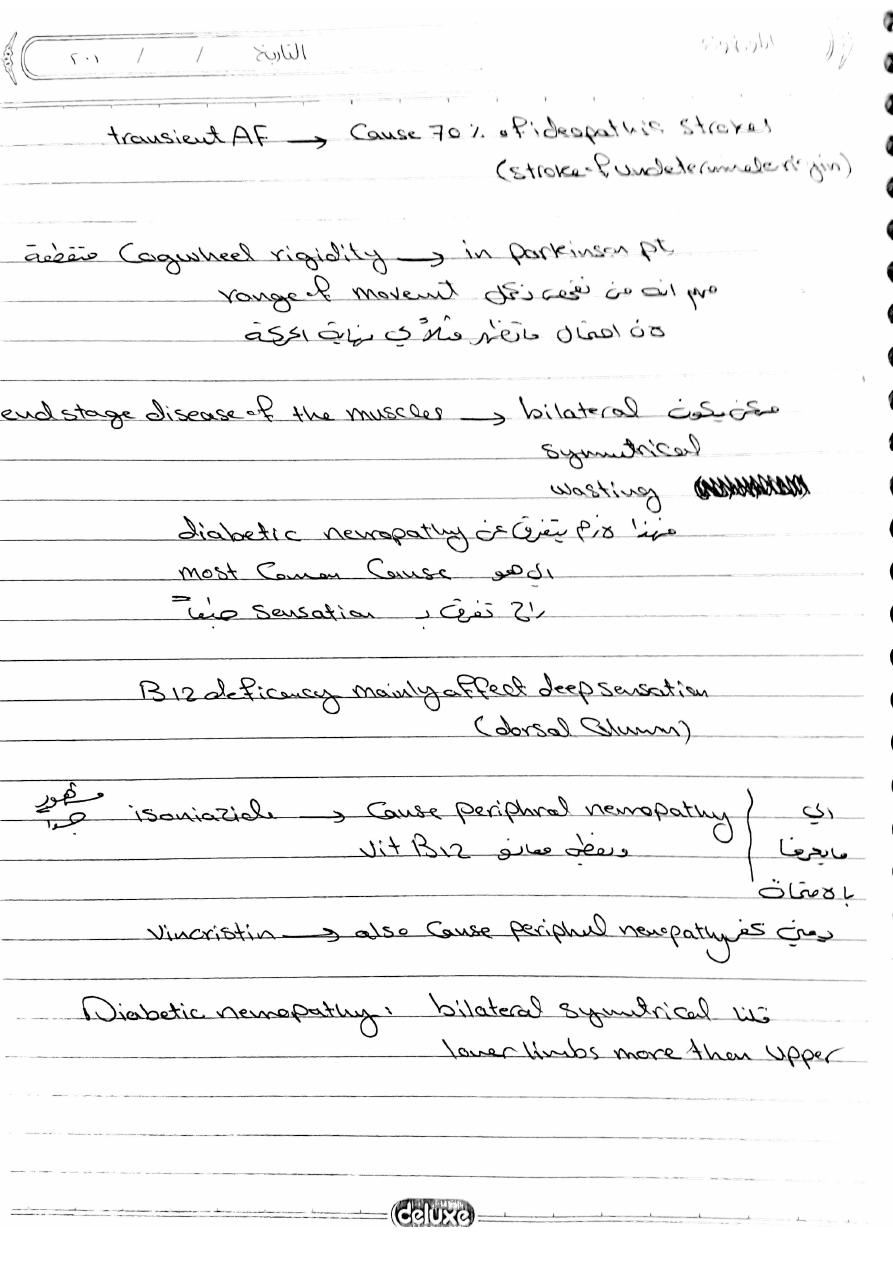 التاريخ / / ٢٠١
transient AF → Cause 70 % of ideopathic strokes
(stroke of undetermined origin)
متقطعة Cogwheel rigidity → in parkinson pt
مهم انه من نفحص كل range of movemt
لان احتمال ماتظهر مثلاً في نهاية الحركة
end stage disease of the muscles → bilateral ممكن يكون
symmtrical
wasting
فهذا لازم يتفرق عن diabetic neuropathy
الي هو most Common Cause
راح تفرق بـ sensation
B12 deficency mainly affect deep sensation
(dorsal Column)
مشهور جداً isoniazide → Cause periphral neuropathy
Vit B12
الي
مايعرفها
بالامتحان
Vincristin → also Cause periphral neuropathy
Diabetic neuropathy: bilateral symmtrical قلنا
lower limbs more then upper
deluxe